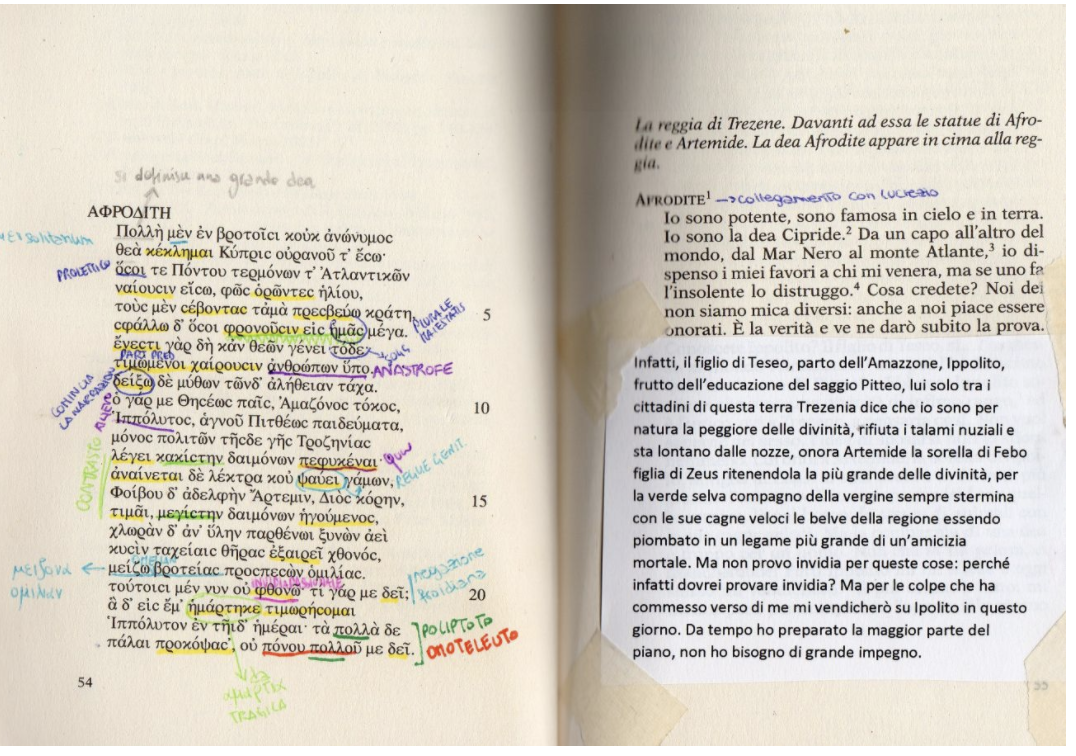 si definisce una grande dea
ΑΦΡΟΔΙΤΗ
Πολλὴ μὲν ἐν βροτοῖϲι κοὐκ ἀνώνυμοϲ
θεὰ κέκλημαι Κύπριϲ οὐρανοῦ τ' ἔϲω·
ὅϲοι τε Πόντου τερμόνων τ' Ἀτλαντικῶν
ναίουϲιν εἴϲω, φῶϲ ὁρῶντεϲ ἡλίου,
τοὺϲ μὲν ϲέβονταϲ τἀμὰ πρεϲβεύω κράτη, 5
ϲφάλλω δ' ὅϲοι φρονοῦϲιν εἰϲ ἡμᾶϲ μέγα.
ἔνεϲτι γὰρ δὴ κἀν θεῶν γένει τόδε·
τιμώμενοι χαίρουϲιν ἀνθρώπων ὕπο.
δείξω δὲ μύθων τῶνδ' ἀλήθειαν τάχα.
ὁ γάρ με Θηϲέωϲ παῖϲ, Ἀμαζόνοϲ τόκοϲ, 10
Ἱππόλυτοϲ, ἁγνοῦ Πιτθέωϲ παιδεύματα,
μόνοϲ πολιτῶν τῆϲδε γῆϲ Τροζηνίαϲ
λέγει κακίϲτην δαιμόνων πεφυκέναι·
ἀναίνεται δὲ λέκτρα κοὐ ψαύει γάμων,
Φοίβου δ' ἀδελφὴν Ἄρτεμιν, Διὸϲ κόρην, 15
τιμᾶι, μεγίϲτην δαιμόνων ἡγούμενοϲ,
χλωρὰν δ' ἀν' ὕλην παρθένωι ξυνὼν ἀεὶ
κυϲὶν ταχείαιϲ θῆραϲ ἐξαιρεῖ χθονόϲ,
μείζω βροτείαϲ προϲπεϲὼν ὁμιλίαϲ.
τούτοιϲι μέν νυν οὐ φθονῶ· τί γάρ με δεῖ; 20
ἃ δ' εἰϲ ἔμ' ἡμάρτηκε τιμωρήϲομαι
Ἱππόλυτον ἐν τῆιδ' ἡμέραι· τὰ πολλὰ δὲ
πάλαι προκόψαϲ', οὐ πόνου πολλοῦ με δεῖ.
PROLETTICO
PLURALE MAIESTATIS
PART PRED
ANASTROFE
COMINCIA LA NARRAZIONE
CONTRASTO
REGGE GENIT.
μείζονα
ὁμιλιῶν
negazione
POLIPTOTO
OMOTELEUTO
TRAGICA
54
La reggia di Trezene. Davanti ad essa le statue di Afro-
dite e Artemide. La dea Afrodite appare in cima alla reg-
gia.
AFRODITE¹ → collegamento con Lucrezio
Io sono potente, sono famosa in cielo e in terra.
Io sono la dea Cipride.² Da un capo all'altro del
mondo, dal Mar Nero al monte Atlante,³ io di-
spenso i miei favori a chi mi venera, ma se uno fa
l'insolente lo distruggo.⁴ Cosa credete? Noi dei
non siamo mica diversi: anche a noi piace essere
onorati. È la verità e ve ne darò subito la prova.
Infatti, il figlio di Teseo, parto dell'Amazzone, Ippolito,
frutto dell'educazione del saggio Pitteo, lui solo tra i
cittadini di questa terra Trezenia dice che io sono per
natura la peggiore delle divinità, rifiuta i talami nuziali e
sta lontano dalle nozze, onora Artemide la sorella di Febo
figlia di Zeus ritenendola la più grande delle divinità, per
la verde selva compagno della vergine sempre stermina
con le sue cagne veloci le belve della regione essendo
piombato in un legame più grande di un'amicizia
mortale. Ma non provo invidia per queste cose: perché
infatti dovrei provare invidia? Ma per le colpe che ha
commesso verso di me mi vendicherò su Ipolito in questo
giorno. Da tempo ho preparato la maggior parte del
piano, non ho bisogno di grande impegno.
55